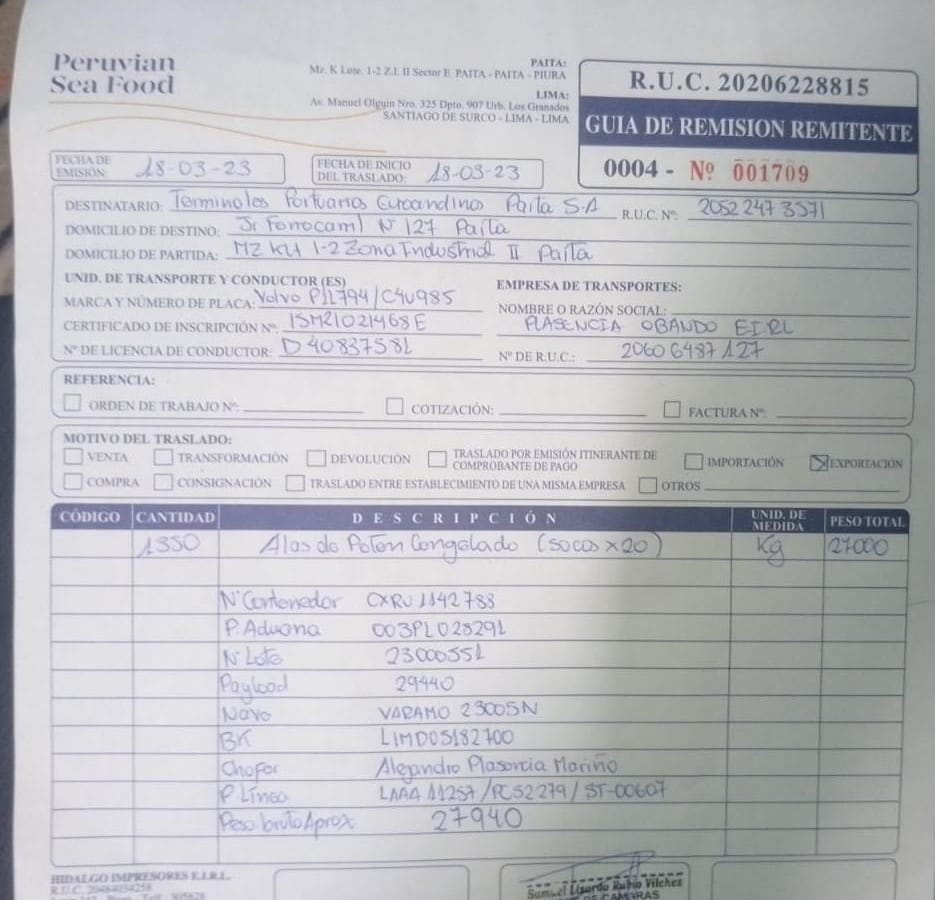 Peruvian
Sea Food
PAITA:
Mz. K Lote. 1-2 Z.I. II Sector E PAITA - PAITA - PIURA
LIMA:
Av. Manuel Olguin Nro. 325 Dpto. 907 Urb. Los Granados
SANTIAGO DE SURCO - LIMA - LIMA
R.U.C. 20206228815
GUIA DE REMISION REMITENTE
0004 - Nº 001709
FECHA DE EMISIÓN: 18-03-23
FECHA DE INICIO DEL TRASLADO: 18-03-23
DESTINATARIO: Terminales Portuarios Euroandinos Paita S-A R.U.C. Nº: 20522473571
DOMICILIO DE DESTINO: Jr Ferrocarril Nº 127 Paita
DOMICILIO DE PARTIDA: MZ K Lt 1-2 Zona Industrial II Paita
UNID. DE TRANSPORTE Y CONDUCTOR (ES)
MARCA Y NÚMERO DE PLACA: Volvo P1L794/C4U985
CERTIFICADO DE INSCRIPCIÓN Nº: 15M21021468E
Nº DE LICENCIA DE CONDUCTOR: D40837581
EMPRESA DE TRANSPORTES:
NOMBRE O RAZÓN SOCIAL:
PLASENCIA OBANDO EIRL
Nº DE R.U.C.: 20606487127
REFERENCIA:
ORDEN DE TRABAJO Nº: COTIZACIÓN: FACTURA Nº:
MOTIVO DEL TRASLADO:
VENTA TRANSFORMACIÓN DEVOLUCIÓN TRASLADO POR EMISIÓN ITINERANTE DE COMPROBANTE DE PAGO IMPORTACIÓN EXPORTACIÓN
COMPRA CONSIGNACIÓN TRASLADO ENTRE ESTABLECIMIENTO DE UNA MISMA EMPRESA OTROS
CÓDIGO CANTIDAD DESCRIPCIÓN UNID. DE MEDIDA PESO TOTAL
1350 Alas de Poton Congelado (sacos x 20) Kg 27000
Nº Contenedor CXRU 1142788
P. Aduana 003PL028291
Nº Lote 23000551
Payload 29440
Nave VARAMO 23005N
BK LIMD05182700
Chofer Alejandro Plasencia Mariño
P. Linea LAAA 11257/PCS2279/ST-00607
Peso bruto Aprox 27940
HIDALGO IMPRESORES E.I.R.L.
R.U.C. 20484034258
Samuel Lisardo Rubio Vilches
DE CAMARAS